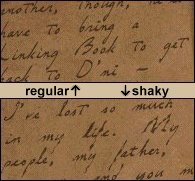 another, though, 
have to bring a
Linking Book to get
back to D'ni —
regular↑ ↓shaky
I've lost so much
in my life. My
people, my father,
and you m